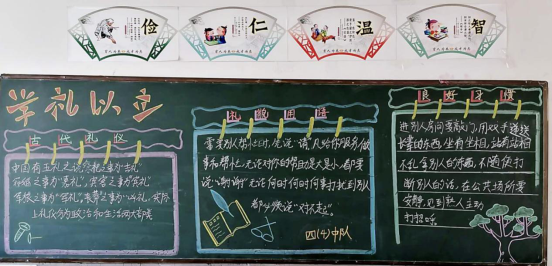 俭
仁
温
智
学礼以立
古代礼仪
中国有五礼之说,祭祀之事为吉礼,
冠婚之事为喜礼,宾客之事为宾礼,
军旅之事为军礼,丧葬之事为凶礼,实际
上礼仪分为政治和生活两大部类
礼貌用语
需要别人帮忙时,先说"请"凡给你服务,做
事和帮忙,无论对你的帮助是大是小,都要
说"谢谢"无论何时何时何事打扰到别人
都必须说"对不起"。
四(4)中队
良好习惯
进别人房间要敲门,用双手递接
长辈的东西,坐有坐相,站有站相
不乱拿别人的东西,不随便打
断别人的话,在公共场所要
安静,见到熟人主动
打招呼